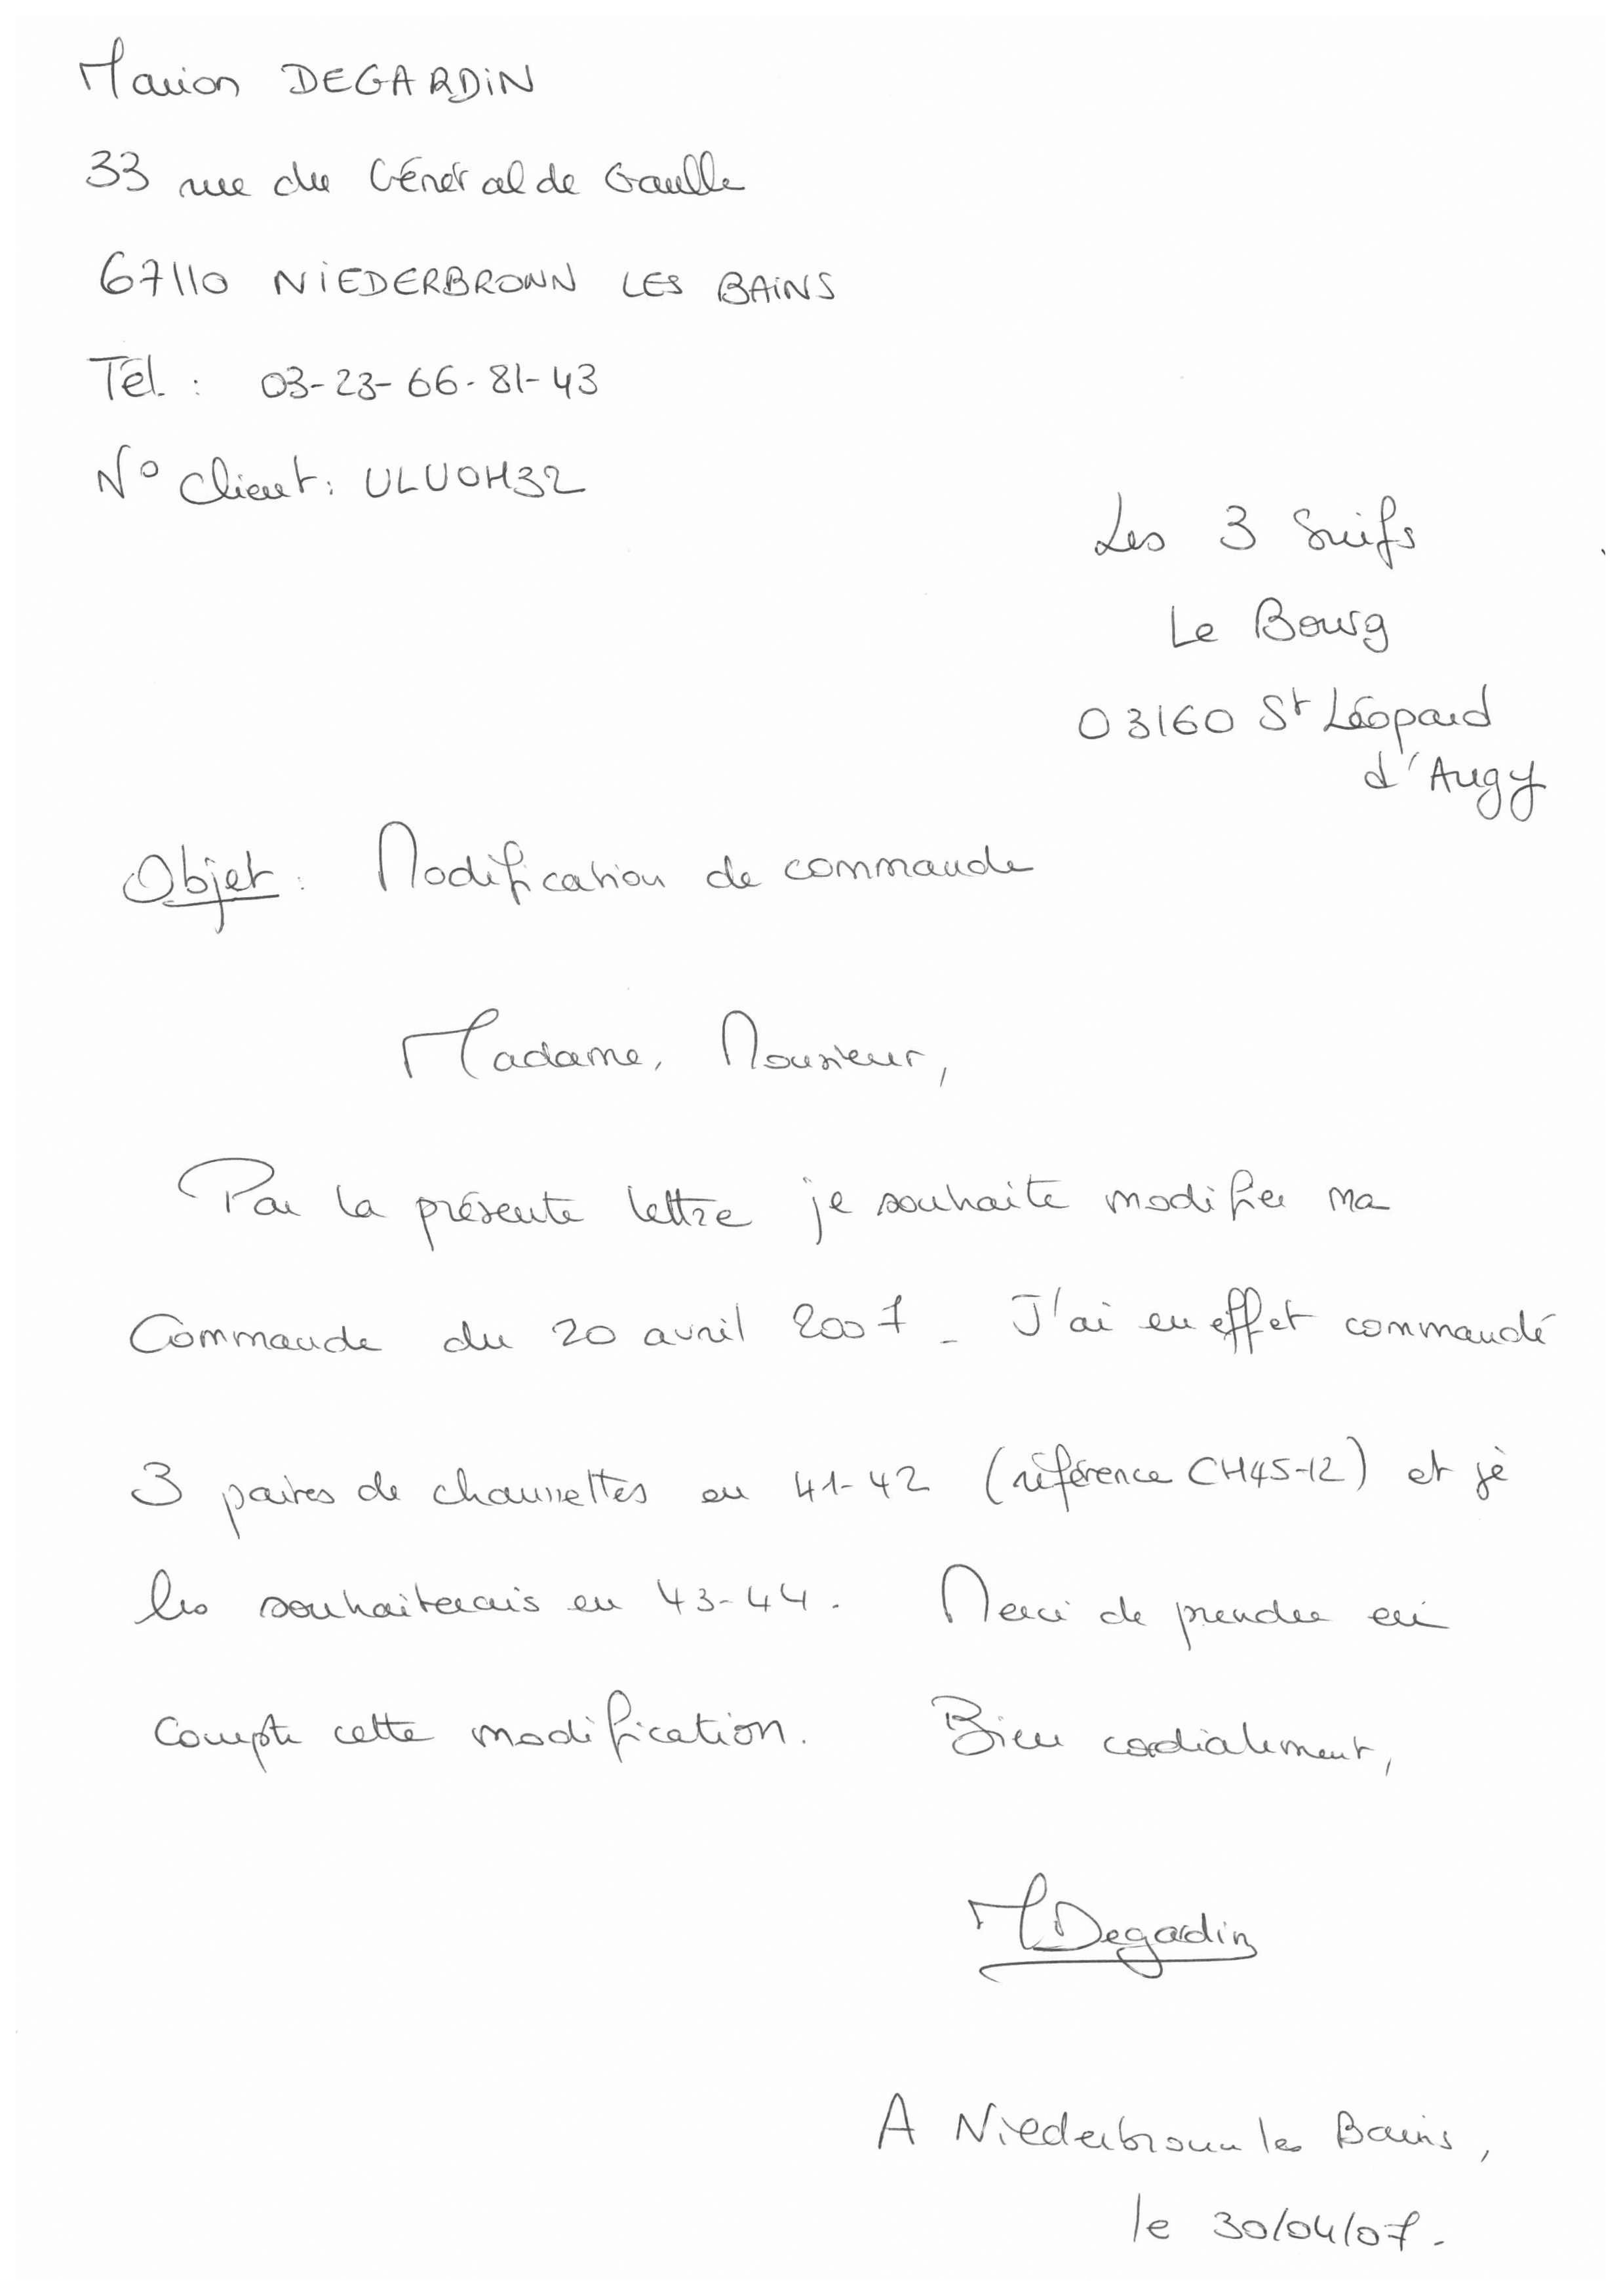 Marion DEGARDIN
33 rue du Général de Gaulle
67110 NIEDERBRONN LES BAINS
Tél. : 03-23-66-81-43
N° Client : ULUOH32
Les 3 Suifs
Le Bourg
03160 St Léopard
d'Augy
Objet : Modification de commande
Madame, Monsieur,
Par la présente lettre je souhaite modifier ma
Commande du 20 avril 2007. J'ai en effet commandé
3 paires de chaussettes en 41-42 (référence CH45-12) et je
les souhaiterais en 43-44. Merci de prendre en
Compte cette modification. Bien cordialement,
MDegardin
A Niederbronn les Bains,
le 30/04/07.